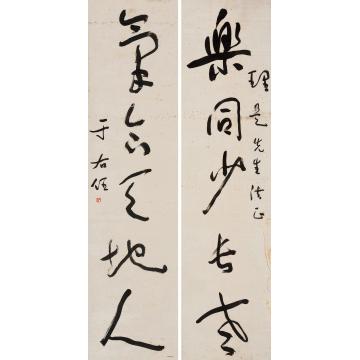 樂同少長老
理是先生法正
氣合天地人
于右任